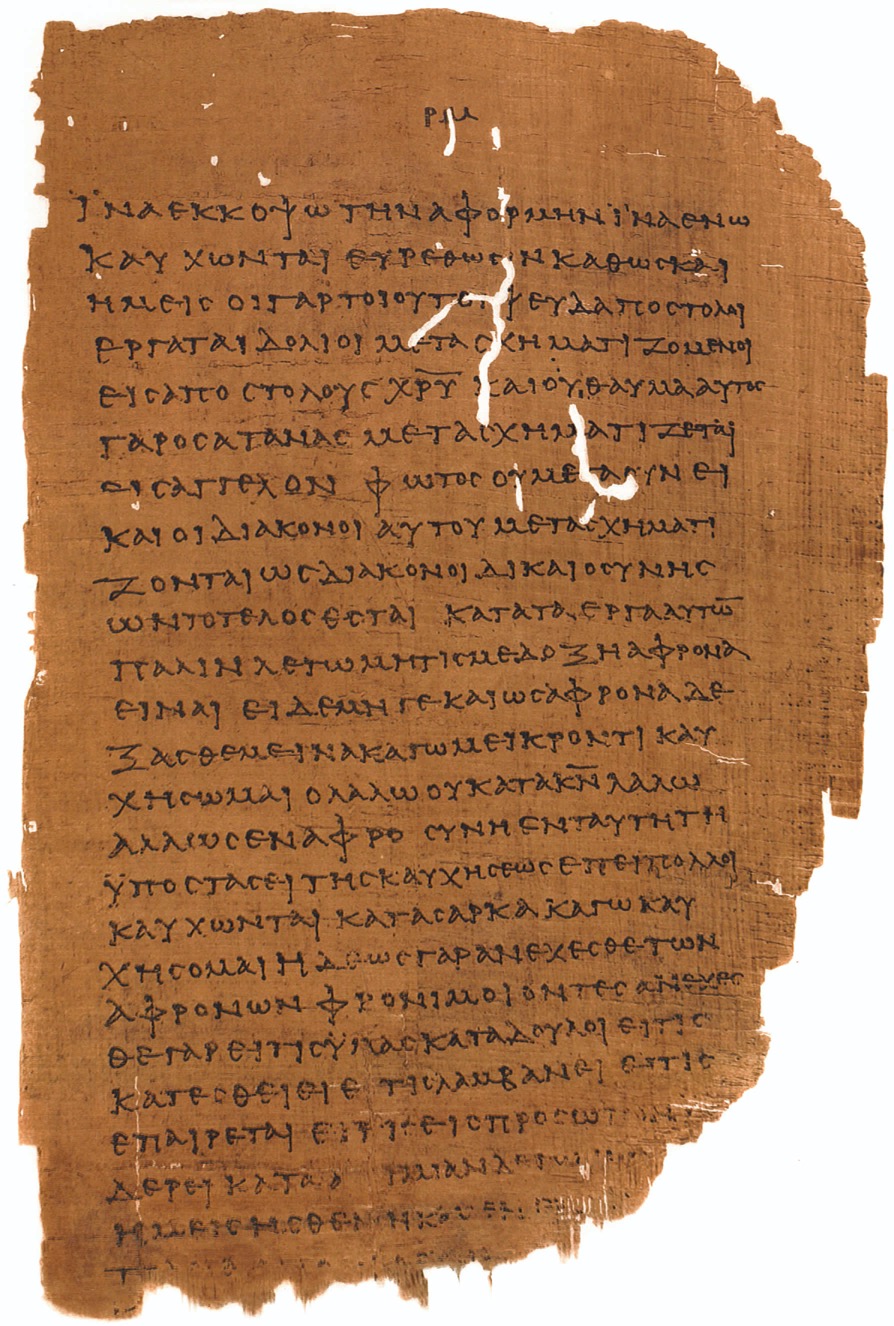 ΡΜ
ΪΝΑΕΚΚΟΨΩΤΗΝΑΦΟΡΜΗΝΪΝΑΕΝΩ
ΚΑΥΧΩΝΤΑΙΕΥΡΕΘΩϹΙΝΚΑΘΩϹΚΑΙ
ΗΜΕΙϹΟΙΓΑΡΤΟΙΟΥΤΟΙΨΕΥΔΑΠΟϹΤΟΛΟΙ
ΕΡΓΑΤΑΙΔΟΛΙΟΙΜΕΤΑϹΧΗΜΑΤΙΖΟΜΕΝΟΙ
ΕΙϹΑΠΟϹΤΟΛΟΥϹΧΡ̅Υ̅ΚΑΙΟΥΘΑΥΜΑΑΥΤΟϹ
ΓΑΡΟϹΑΤΑΝΑϹΜΕΤΑϹΧΗΜΑΤΙΖΕΤΑΙ
ΕΙϹΑΓΓΕΛΟΝΦΩΤΟϹΟΥΜΕΓΑΟΥΝΕΙ
ΚΑΙΟΙΔΙΑΚΟΝΟΙΑΥΤΟΥΜΕΤΑϹΧΗΜΑΤΙ
ΖΟΝΤΑΙΩϹΔΙΑΚΟΝΟΙΔΙΚΑΙΟϹΥΝΗϹ
ΩΝΤΟΤΕΛΟϹΕϹΤΑΙΚΑΤΑΤΑΕΡΓΑΑΥΤΩ̅
ΠΑΛΙΝΛΕΓΩΜΗΤΙϹΜΕΔΟΞΗΑΦΡΟΝΑ
ΕΙΝΑΙΕΙΔΕΜΗΓΕΚΑΙΩϹΑΦΡΟΝΑΔΕ
ΞΑϹΘΕΜΕΙΝΑΚΑΓΩΜΕΙΚΡΟΝΤΙΚΑΥ
ΧΗϹΩΜΑΙΟΛΑΛΩΟΥΚΑΤΑΚ̅Ν̅ΛΑΛΩ
ΑΛΛΩϹΕΝΑΦΡΟϹΥΝΗΕΝΤΑΥΤΗΤΗ
ΫΠΟϹΤΑϹΕΙΤΗϹΚΑΥΧΗϹΕΩϹΕΠΕΙΠΟΛΛΟΙ
ΚΑΥΧΩΝΤΑΙΚΑΤΑϹΑΡΚΑΚΑΓΩΚΑΥ
ΧΗϹΟΜΑΙΗΔΕΩϹΓΑΡΑΝΕΧΕϹΘΕΤΩΝ
ΑΦΡΟΝΩΝΦΡΟΝΙΜΟΙΟΝΤΕϹΑΝΕΧΕϹ
ΘΕΓΑΡΕΙΤΙϹΫΜΑϹΚΑΤΑΔΟΥΛΟΙΕΙΤΙϹ
ΚΑΤΕϹΘΕΙΕΙΕΙΤΙϹΛΑΜΒΑΝΕΙΕΙΤΙϹ
ΕΠΑΙΡΕΤΑΙΕΙΤΙϹΕΙϹΠΡΟϹΩΠΟΝ
ΔΕΡΕΙΚΑΤΑ
ΗΜΕΙϹΗϹΘΕΝΗΚΑ